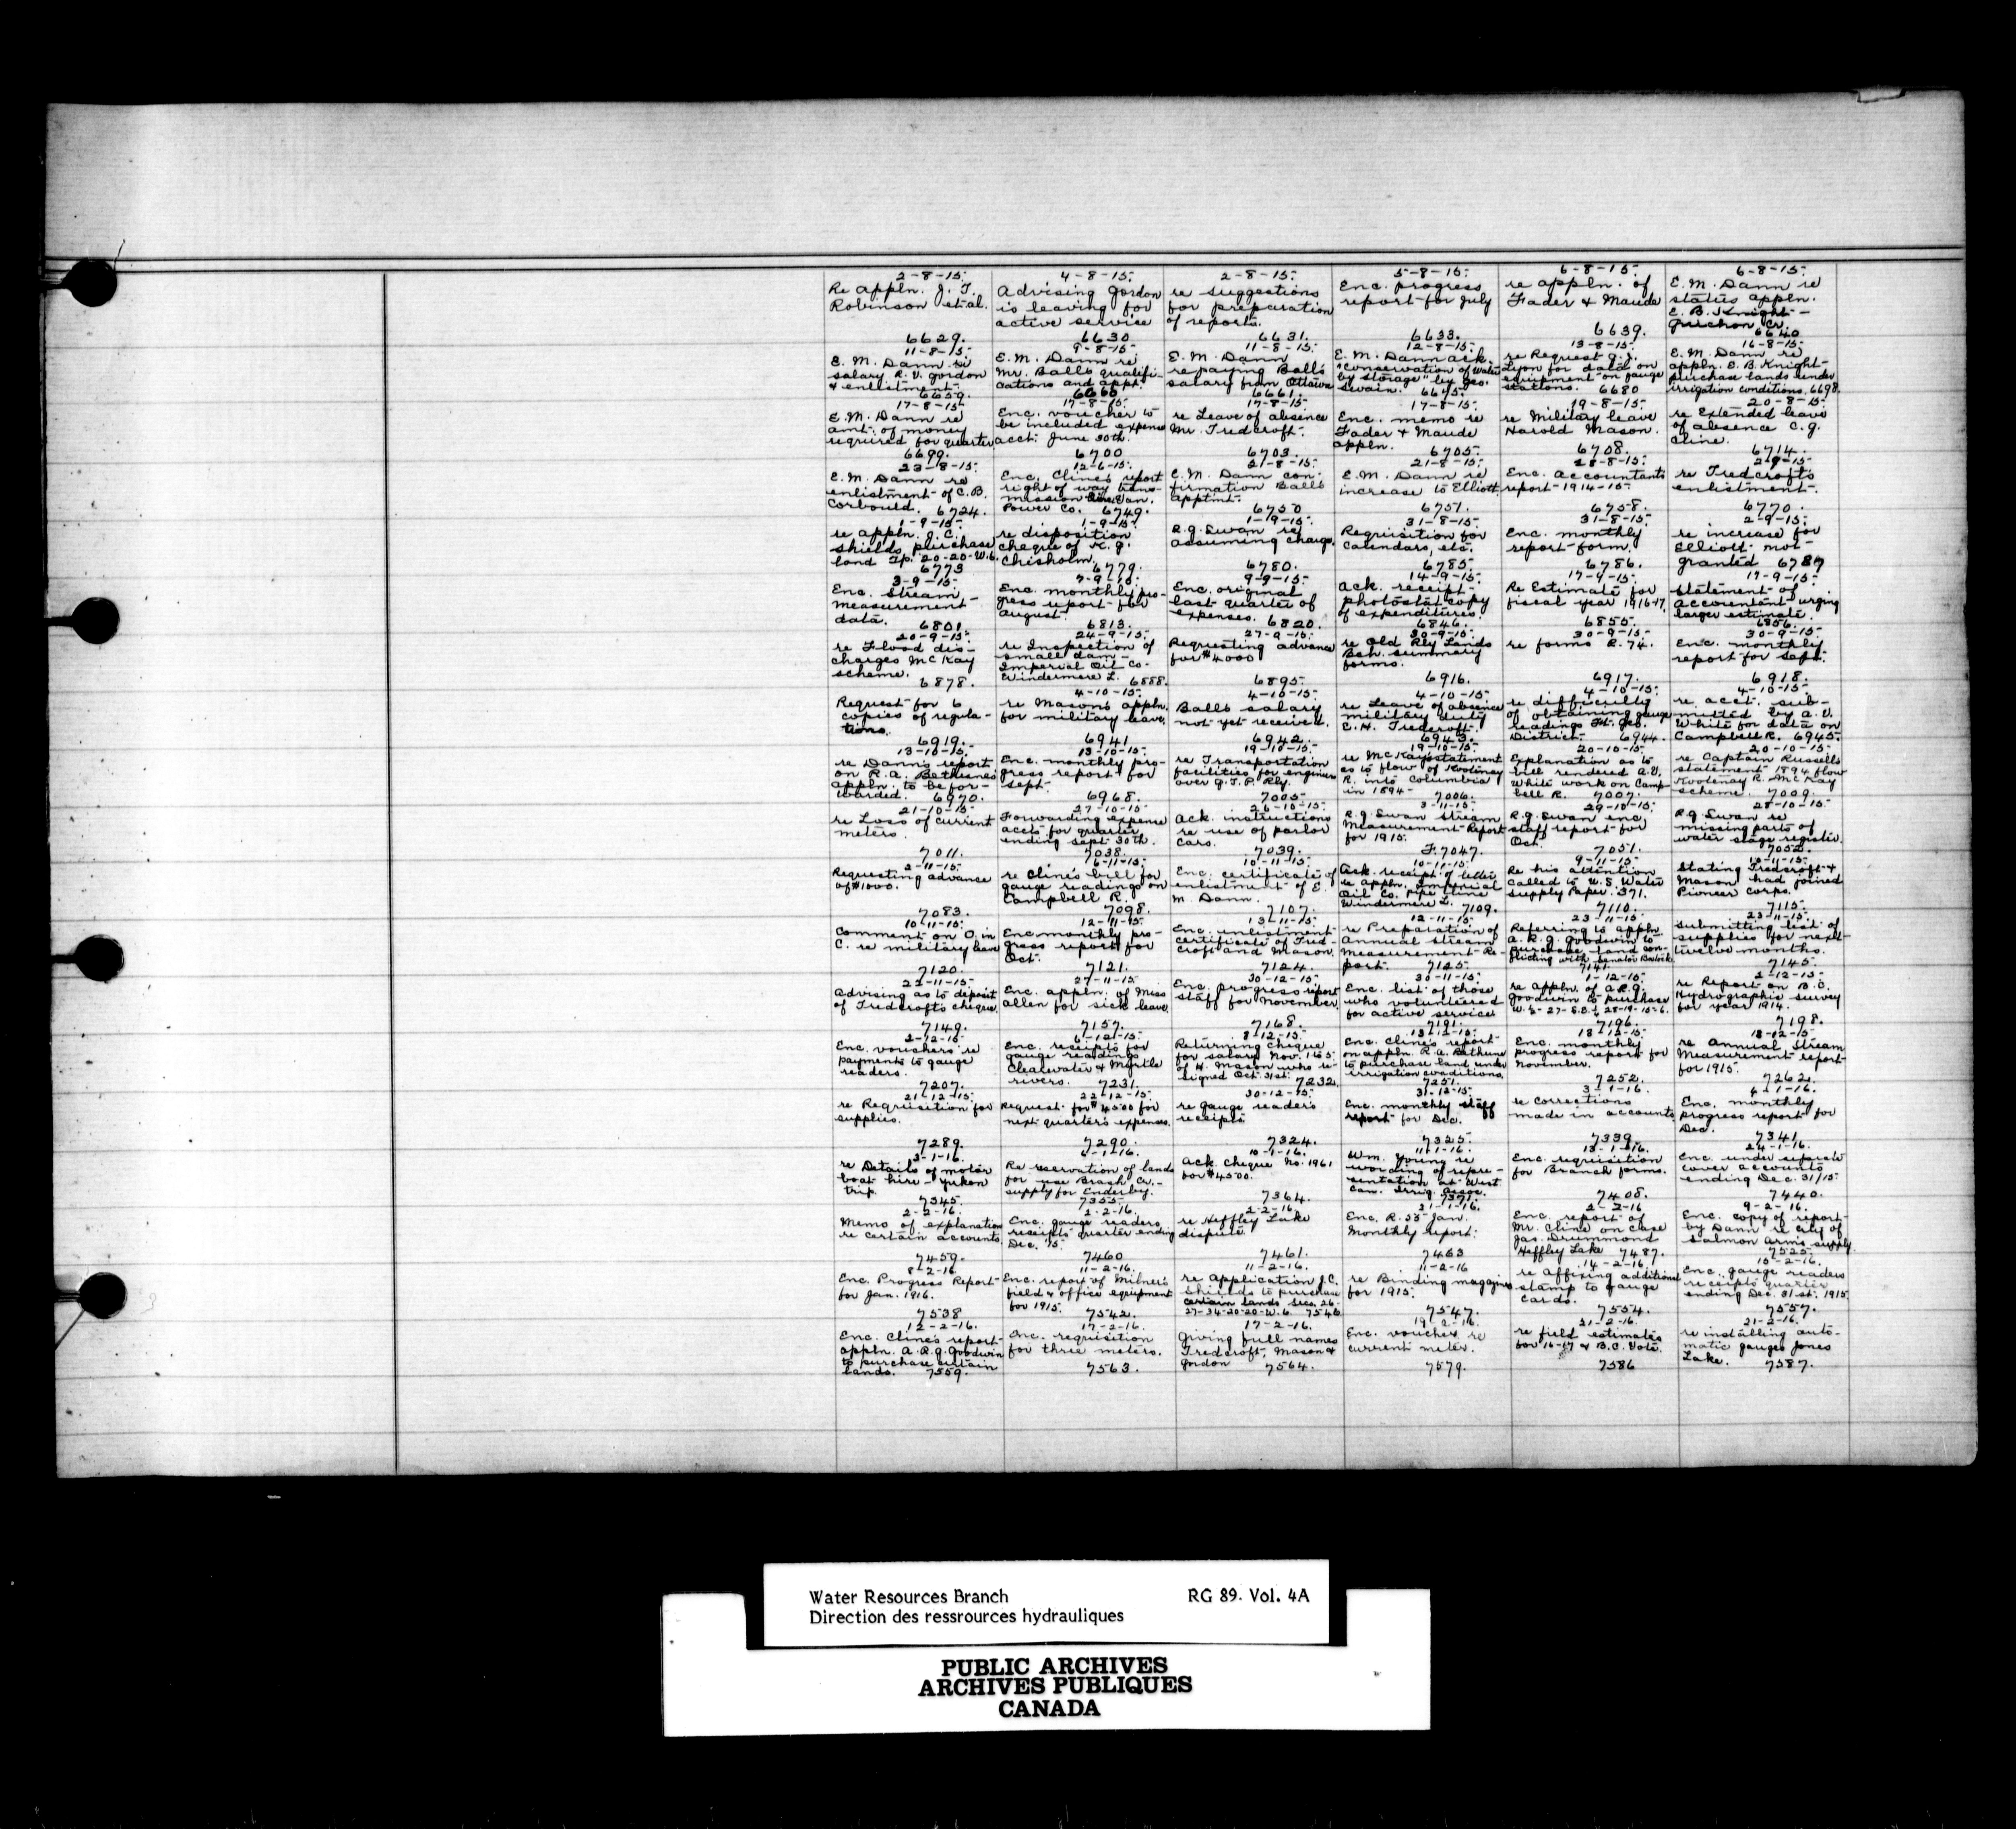 2-8-15.
Re appln. J. T.
Robinson et al.
6629.
4-8-15.
Advising Gordon
is leaving for
active service
6630
2-8-15.
re suggestions
for preparation
of reports.
6631.
5-8-15.
Enc. progress
report for July
6633.
6-8-15.
re appln. of
Fader & Maude
6639.
6-8-15.
E. M. Dann re
status appln.
E. B. Knight -
Guichon Cr.
6640
11-8-15.
E. M. Dann re
salary R. V. Gordon
& enlistment.
6659.
9-8-15.
E. M. Dann re
Mr. Balls qualifi-
cations and appt.
6660
11-8-15.
E. M. Dann
re paying Balls
salary from Ottawa
6661.
12-8-15.
E. M. Dann ack.
"Conservation of Water
by storage" by Geo.
Swain. 6675.
13-8-15.
re Request G. J.
Lyon for data on
equipment on gauge
stations. 6680
16-8-15.
E. M. Dann re
appln. E. B. Knight
purchase lands under
irrigation conditions. 6698.
17-8-15.
E. M. Dann re
amt. of money
required for quarter
6699.
17-8-15.
Enc. voucher to
be included expense
acct. June 30th.
6700
17-8-15.
re Leave of absence
Mr. Tredcroft.
6703.
17-8-15.
Enc. memo re
Fader & Maude
appln. 6705.
19-8-15.
re Military leave
Harold Mason.
6708.
20-8-15.
re Extended leave
of absence C. G.
Cline.
6714.
23-8-15.
E. M. Dann re
enlistment of C. B.
Corbould. 6724.
12-6-15.
Enc. Cline's report
right of way trans-
mission line Van.
Power Co. 6749.
21-8-15.
E. M. Dann con-
firmation Balls
apptmt.
6750
21-8-15.
E. M. Dann re
increase to Elliott.
6751.
28-8-15.
Enc. Accountants
report 1914-15.
6758.
2-9-15.
re Tredcrofts
enlistment.
6770.
1-9-15.
re appln. J. C.
Shields purchase
land Tp. 20-20-W.6.
6773
1-9-15.
re disposition
cheque of K. G.
Chisholm.
6779.
1-9-15.
R. G. Swan re
assuming charge.
6780.
31-8-15.
Requisition for
calendars, etc.
6785.
31-8-15.
Enc. monthly
report form.
6786.
2-9-15.
re increase for
Elliott not
granted 6787
3-9-15.
Enc. stream
measurement
data. 6801.
7-9-15.
Enc. monthly pro-
gress report for
August. 6813.
9-9-15.
Enc. original
last quarter of
expenses. 6820.
14-9-15.
Ack. receipt
photostat copy
of expenditures.
6846.
17-9-15.
Re Estimate for
fiscal year 1916-17.
6855.
17-9-15.
Statement of
accountant urging
larger estimate.
6856.
20-9-15.
re Flood dis-
charges McKay
scheme.
6878.
24-9-15.
re Inspection of
small dam -
Imperial Oil Co.
Windermere L. 6888.
27-9-15.
Requesting advance
for $4000
6895.
30-9-15.
re Old Rly Lands
Bch. summary
forms.
6916.
30-9-15.
re forms R. 74.
6917.
30-9-15.
Enc. monthly
report for Sept.
6918.
Request for 6
copies of regula-
tions.
6919.
4-10-15.
re Masons appln.
for military leave.
6941
4-10-15.
Balls salary
not yet received.
6942.
4-10-15.
re Leave of absence
military duty
C. H. Tredcroft.
6943.
4-10-15.
re difficulty
of obtaining gauge
readings Ft. Geo.
District. 6944.
4-10-15.
re acct. sub-
mitted by A. V.
White for data on
Campbell R. 6945.
13-10-15.
re Dann's report
on R. A. Bethunes
appln. to be for-
warded. 6970.
13-10-15.
Enc. monthly pro-
gress report for
Sept.
6968.
19-10-15.
re Transportation
facilities for engineers
over G. T. P. Rly.
7005.
19-10-15.
re McKays statement
as to flow of Kootenay
R. into Columbia
in 1894 - 7006.
20-10-15.
Explanation as to
bill rendered A. V.
White work on Camp-
bell R. 7007.
20-10-15.
re Captain Russells
statement 1894 flow
Kootenay R. McKay
scheme. 7009.
21-10-15.
re Loss of current
meters.
7011.
27-10-15.
Forwarding expense
accts for quarter
ending Sept. 30th.
7038.
26-10-15.
Ack. instructions
re use of parlor
cars.
7039.
3-11-15.
R. G. Swan Stream
Measurement Report
for 1915.
F. 7047.
29-10-15.
R. G. Swan enc.
staff report for
Oct.
7051.
28-10-15.
R. G. Swan re
missing parts of
water stage register.
7052.
2-11-15.
Requesting advance
of $1000.
7083.
6-11-15.
re Cline's bill for
gauge readings on
Campbell R.
7098.
10-11-15.
Enc. certificate of
enlistment of E.
M. Dann.
7107.
10-11-15.
Ack. receipt of letter
re appln. Imperial
Oil Co. pipe line
Windermere L. 7109.
9-11-15.
Re his attention
called to U. S. Water
Supply Paper 371.
7110.
10-11-15.
Stating Tredcroft &
Mason had joined
Pioneer Corps.
7115.
10-11-15.
Comment on O. in
C. re military leave
7120.
12-11-15.
Enc. monthly pro-
gress report for
Oct.
7121.
13-11-15.
Enc. enlistment
certificate of Tred-
croft and Mason.
7124.
12-11-15.
re Preparation of
Annual Stream
Measurement Re-
port. 7125.
23-11-15.
Referring to appln.
A. R. G. Goodwin to
purchase land con-
flicting with Senator Bostock.
7141.
23-11-15.
Submitting list of
supplies for next
twelve months.
7145.
22-11-15.
Advising as to deposit
of Tredcrofts cheque.
7149.
27-11-15.
Enc. appln. of Miss
Allen for sick leave.
7157.
30-12-15.
Enc. progress report
staff for November.
7168.
30-11-15.
Enc. list of those
who volunteered
for active service.
7191.
1-12-15.
re appln. of A. R. G.
Goodwin to purchase
7196.
2-12-15.
re Report on B. C.
Hydrographic survey
for year 1914.
7198.
2-12-15.
Enc. vouchers re
payments to gauge
readers.
7207.
6-12-15.
Enc. receipts for
gauge readings
Clearwater & Myrtle
rivers. 7231.
8-12-15.
Returning cheque
for salary Nov. 1-15
of H. Mason who re-
signed Oct. 31st. 7232.
13-12-15.
Enc. Cline's report
on appln. R. A. Bethune
to purchase land under
irrigation conditions.
7251.
13-12-15.
Enc. monthly
progress report for
November.
7252.
13-12-15.
re Annual Stream
Measurement report
for 1915.
7262.
21-12-15.
re Requisition for
supplies.
7289.
22-12-15.
Request for $4500 for
next quarter's expenses.
7290.
30-12-15.
re gauge readers
receipts
7324.
31-12-15.
Enc. monthly staff
report for Dec.
7325.
3-1-16.
re corrections
made in accounts.
7339.
6-1-16.
Enc. monthly
progress report for
Dec.
7341.
3-1-16.
re Details of motor
boat hire - Yukon
trip.
7345.
6-1-16.
Re reservation of lands
for use Brash Cr. -
supply for Enderby.
7355.
10-1-16.
Ack. cheque No. 1961
for $4500.
7364.
11-1-16.
Wm. Young re
wording of repre-
sentation at West.
Can. Irrig. Assoc.
7371.
13-1-16.
Enc. requisition
for Branch forms.
7408.
24-1-16.
Enc. under separate
cover accounts
ending Dec. 31/15.
7440.
2-2-16.
Memo of explanation
re certain accounts.
7459.
2-2-16.
Enc. gauge readers
receipts quarter ending
Dec. '15.
7460
2-2-16.
re Heffley Lake
dispute.
7461.
21-1-16.
Enc. R. 55 Jan.
Monthly report.
7463
2-2-16
Enc. report of
Mr. Cline on case
Jas. Drummond
Heffley Lake 7487.
9-2-16.
Enc. copy of report
by Dann re city of
Salmon Arms supply.
7525.
8-2-16.
Enc. Progress Report
for Jan. 1916.
7538
11-2-16.
Enc. report of Milner's
field & office equipment
for 1915. 7542.
11-2-16.
re Application J. C.
Shields to purchase
certain lands Secs. 26-
27-34-20-20-W. 6. 7546
11-2-16
re Binding magazines
for 1915.
7547.
14-2-16.
re Affixing additional
stamp to gauge
cards.
7554.
15-2-16.
Enc. gauge readers
receipts quarter
ending Dec. 31st. 1915
7557.
12-2-16.
Enc. Cline's report
appln. A. R. G. Goodwin
to purchase certain
lands. 7559.
17-2-16.
Enc. requisition
for three meters.
7563.
17-2-16.
Giving full names
Tredcroft, Mason &
Gordon 7564.
19-2-16.
Enc. voucher re
current meter.
7579.
21-2-16.
re field estimates
for 16-17 & B. C. Vote.
7586
21-2-16.
re installing auto-
matic gauges Jones
Lake. 7587.
Water Resources Branch RG 89. Vol. 4A
Direction des ressrources hydrauliques
PUBLIC ARCHIVES
ARCHIVES PUBLIQUES
CANADA